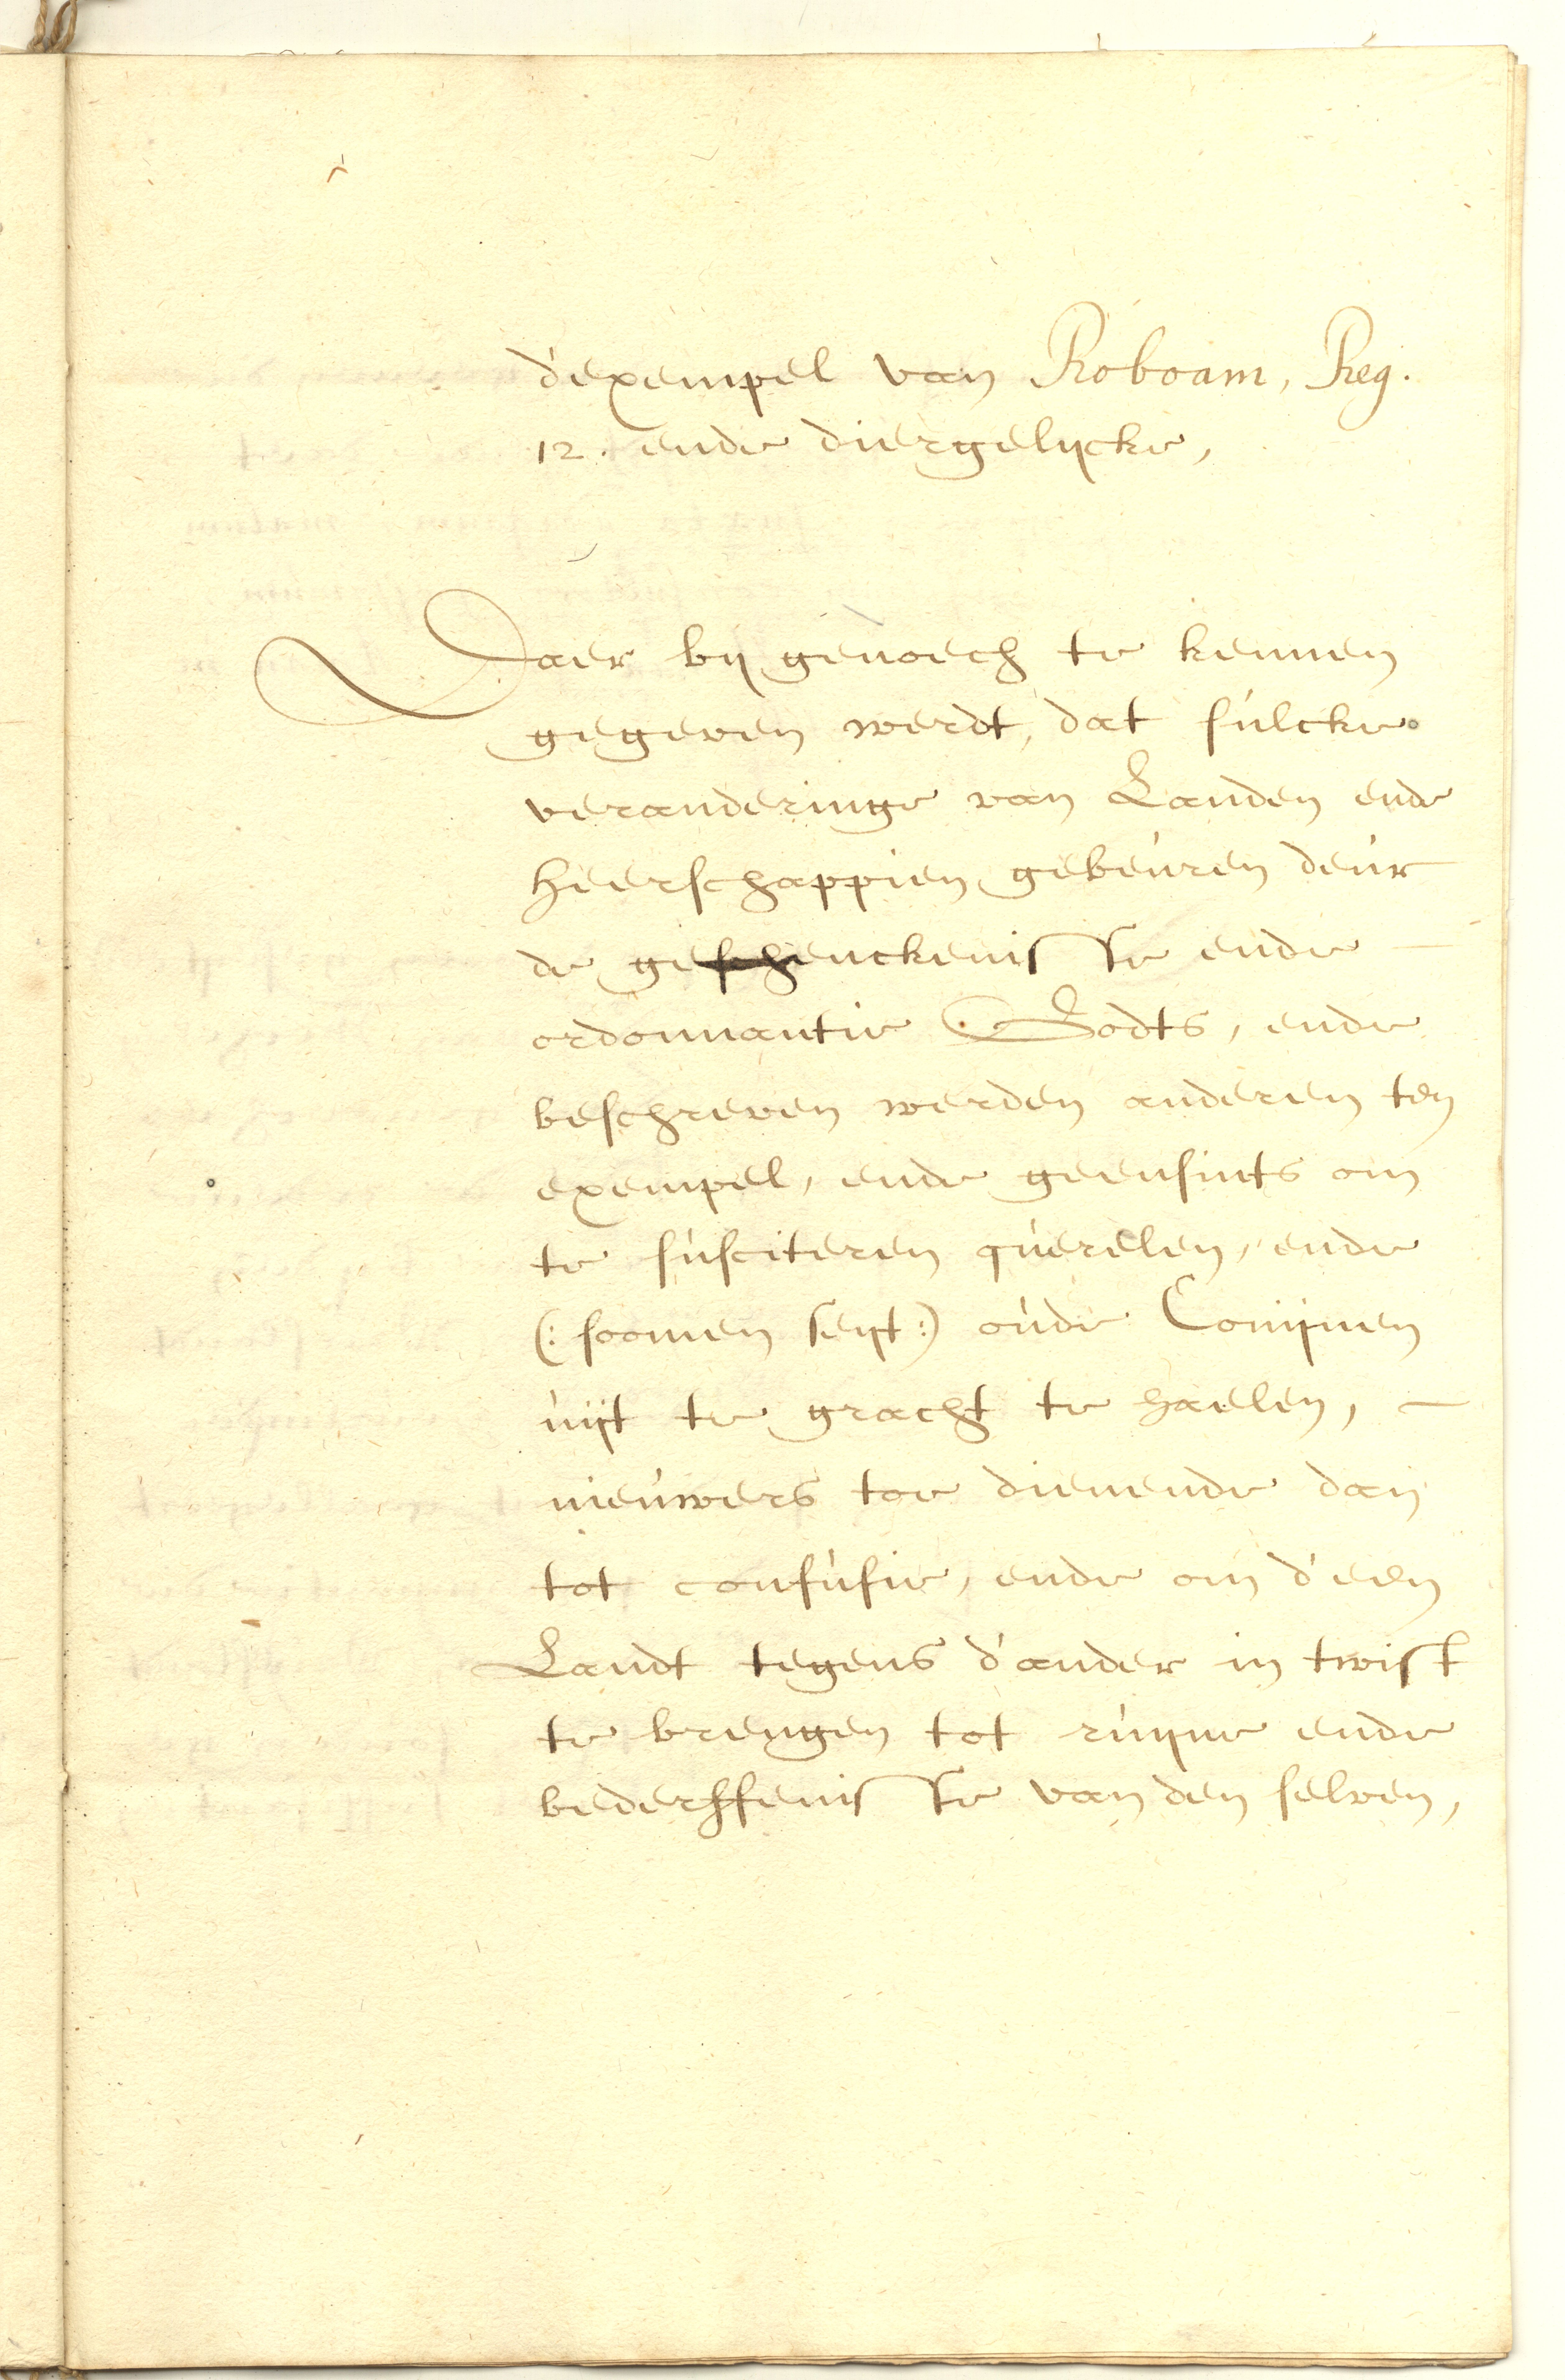 d'exempel van Roboam, Reg.
12. ende diergelijcke,
Daer bij genoech te kennen
gegeven werdt, dat sulcke
veranderinge van Landen ende
Heerschappien gebeuren deur
de geschenckenisse ende
ordonnantie Godts, ende
beschreven werden anderen ten
exempel, ende geensints om
te susciteren querelen, ende
(: soomen seijt :) oude Conijnen
uijt te gracht te haelen,
nieuwers toe dienende dan
tot confusie, ende om d'een
Landt tegens d'ander in twist
te brengen tot ruijne ende
bederffenisse van den selven,